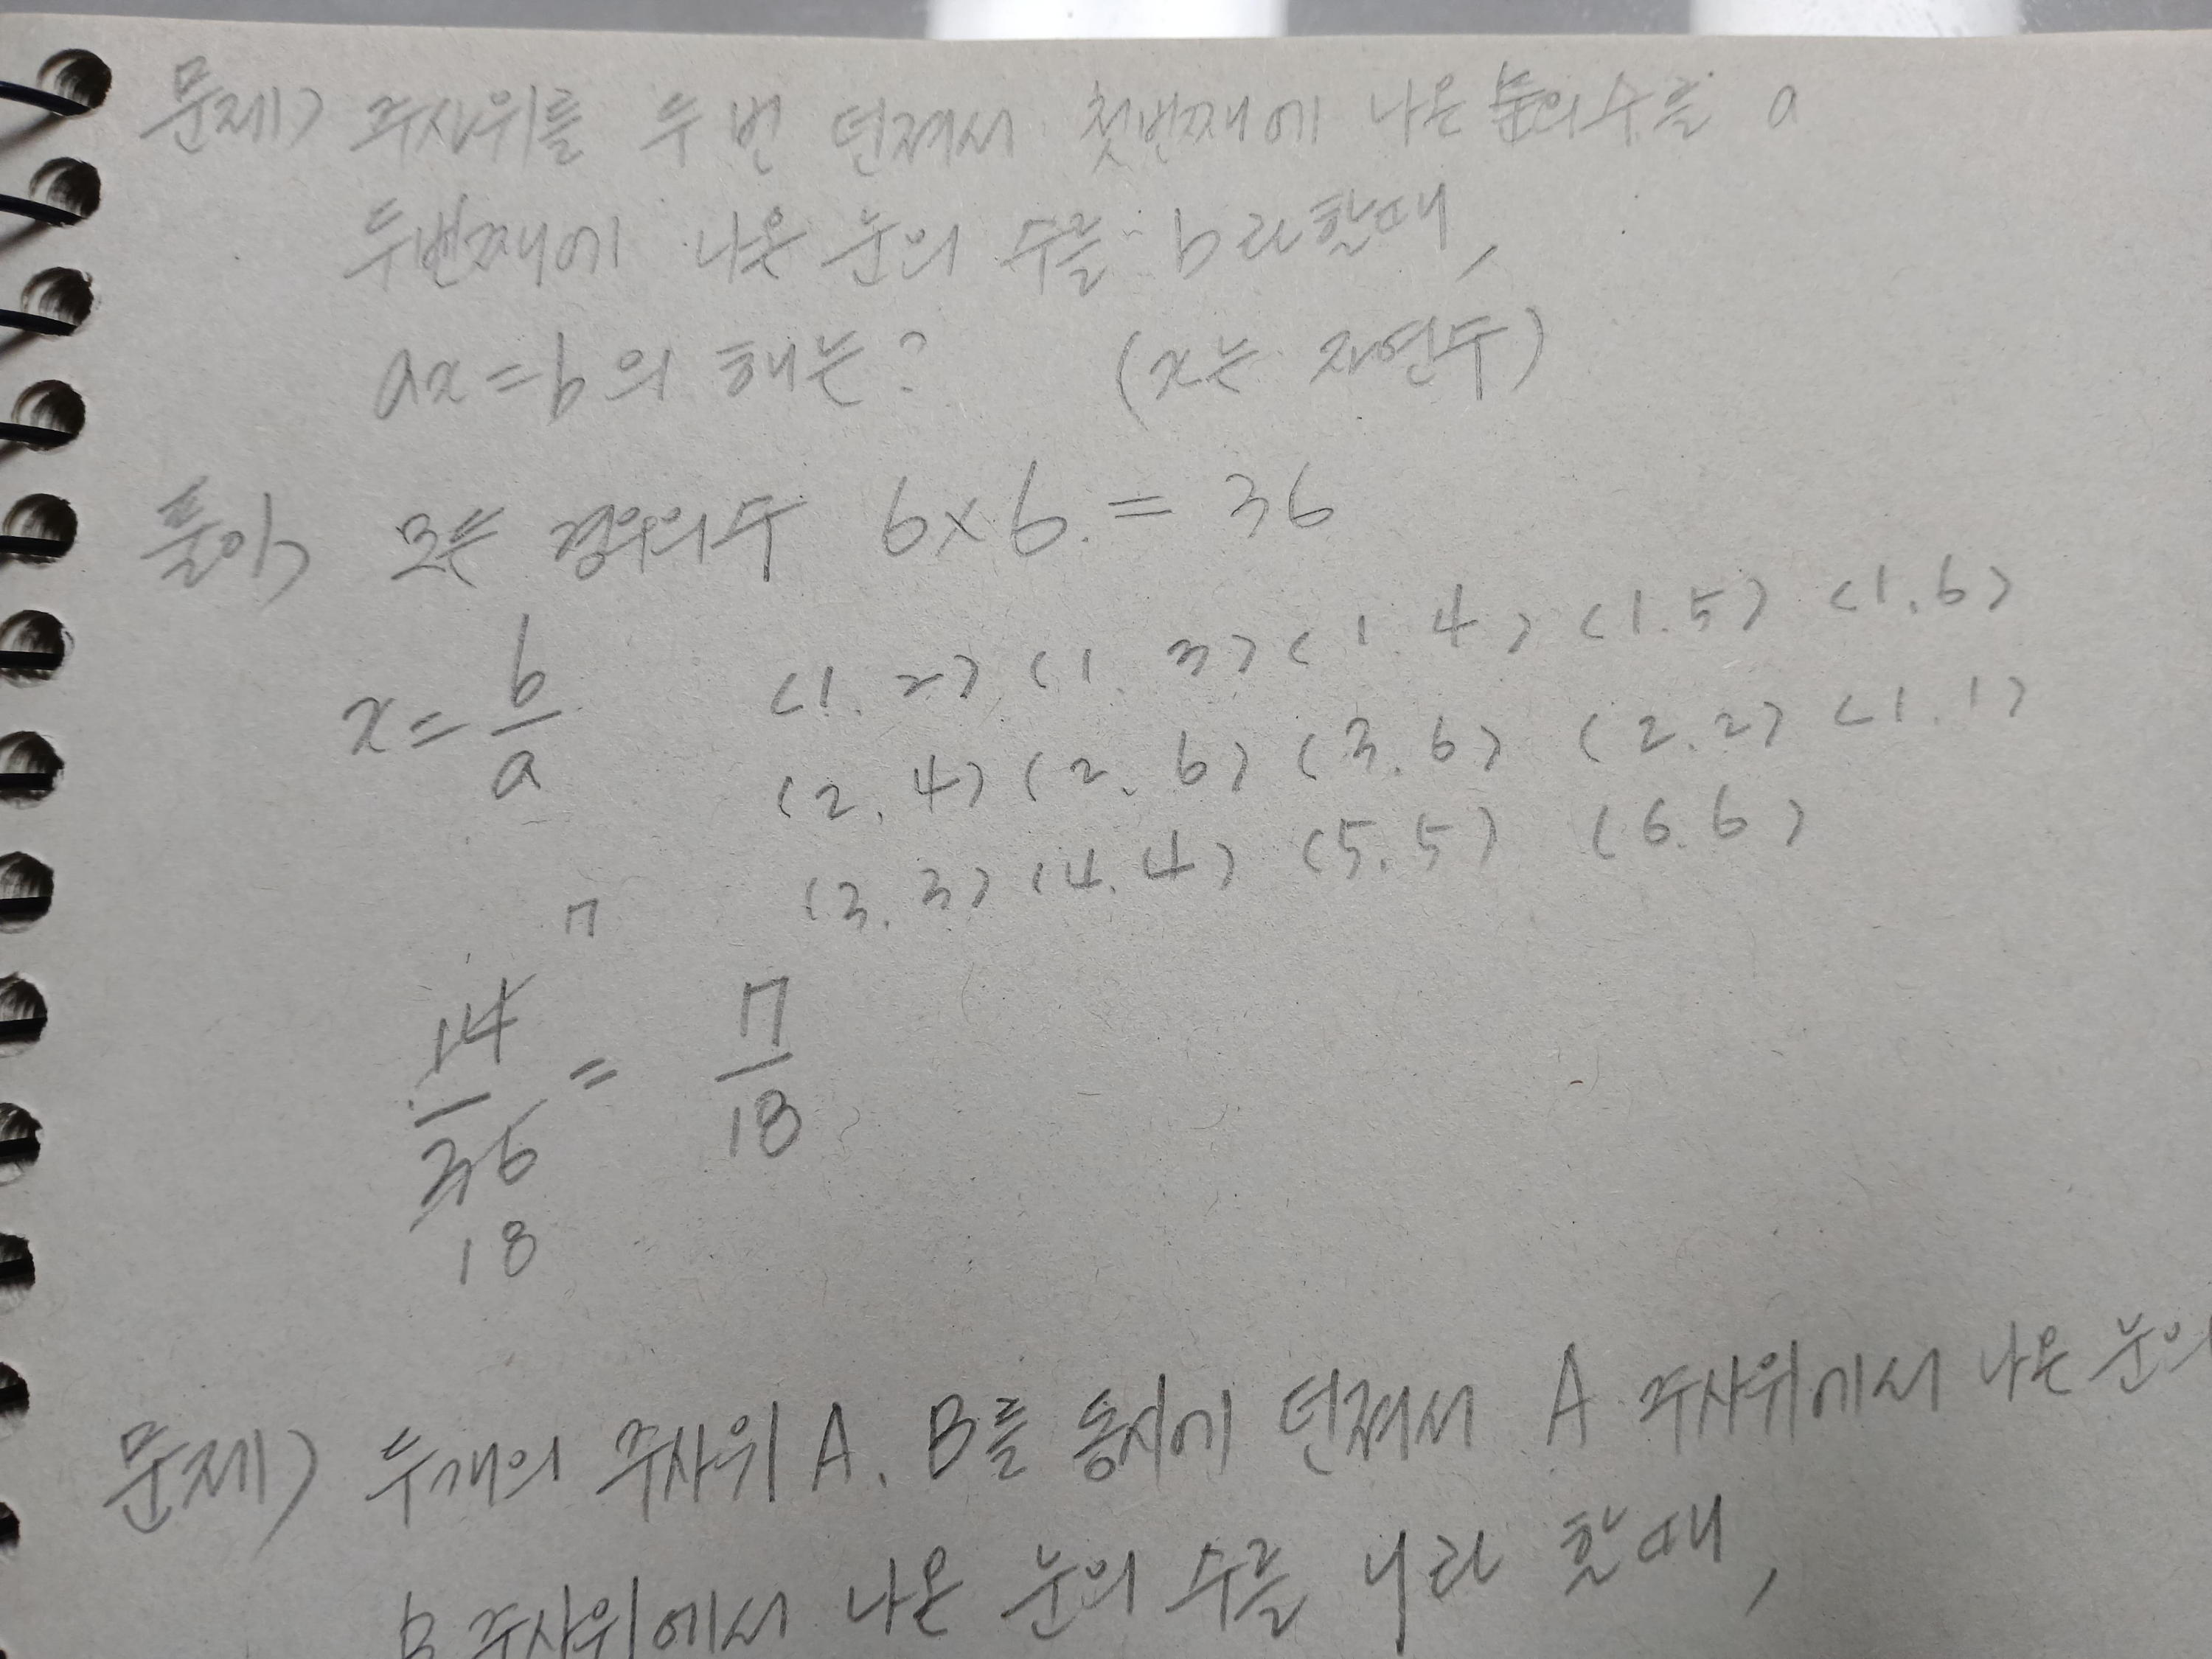 문제> 주사위를 두 번 던져서 첫번째에 나온 눈의 수를 a
두번째에 나온 눈의 수를 b라할때,
ax=b의 해는? (x는 자연수)
풀이> 모든 경우의수 6×6=36
x=b/a (1.2) (1.3) (1.4) (1.5) (1.6)
(2.4) (2.6) (3.6) (2.2) (1.1)
(3.3) (4.4) (5.5) (6.6)
7
14/36 = 7/18
18
문제) 두개의 주사위 A. B를 동시에 던져서 A 주사위에서 나온 눈의
B 주사위에서 나온 눈의 수를 y라 할때,